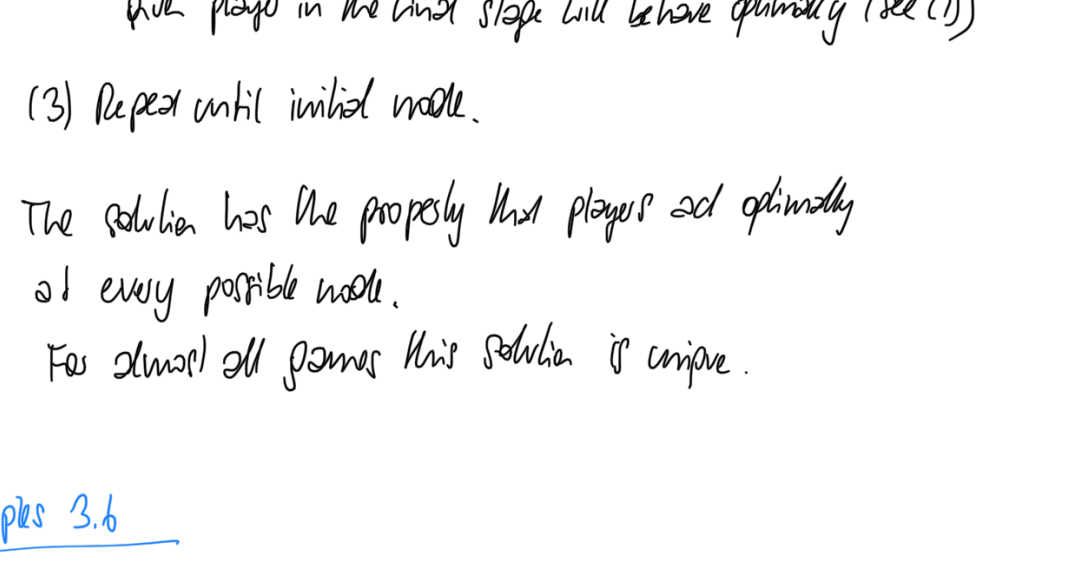 given player in the final stage will behave optimally (see (1))
(3) Repeat until initial node.
The solution has the property that players act optimally
at every possible node.
For almost all games this solution is unique.
ples 3.6